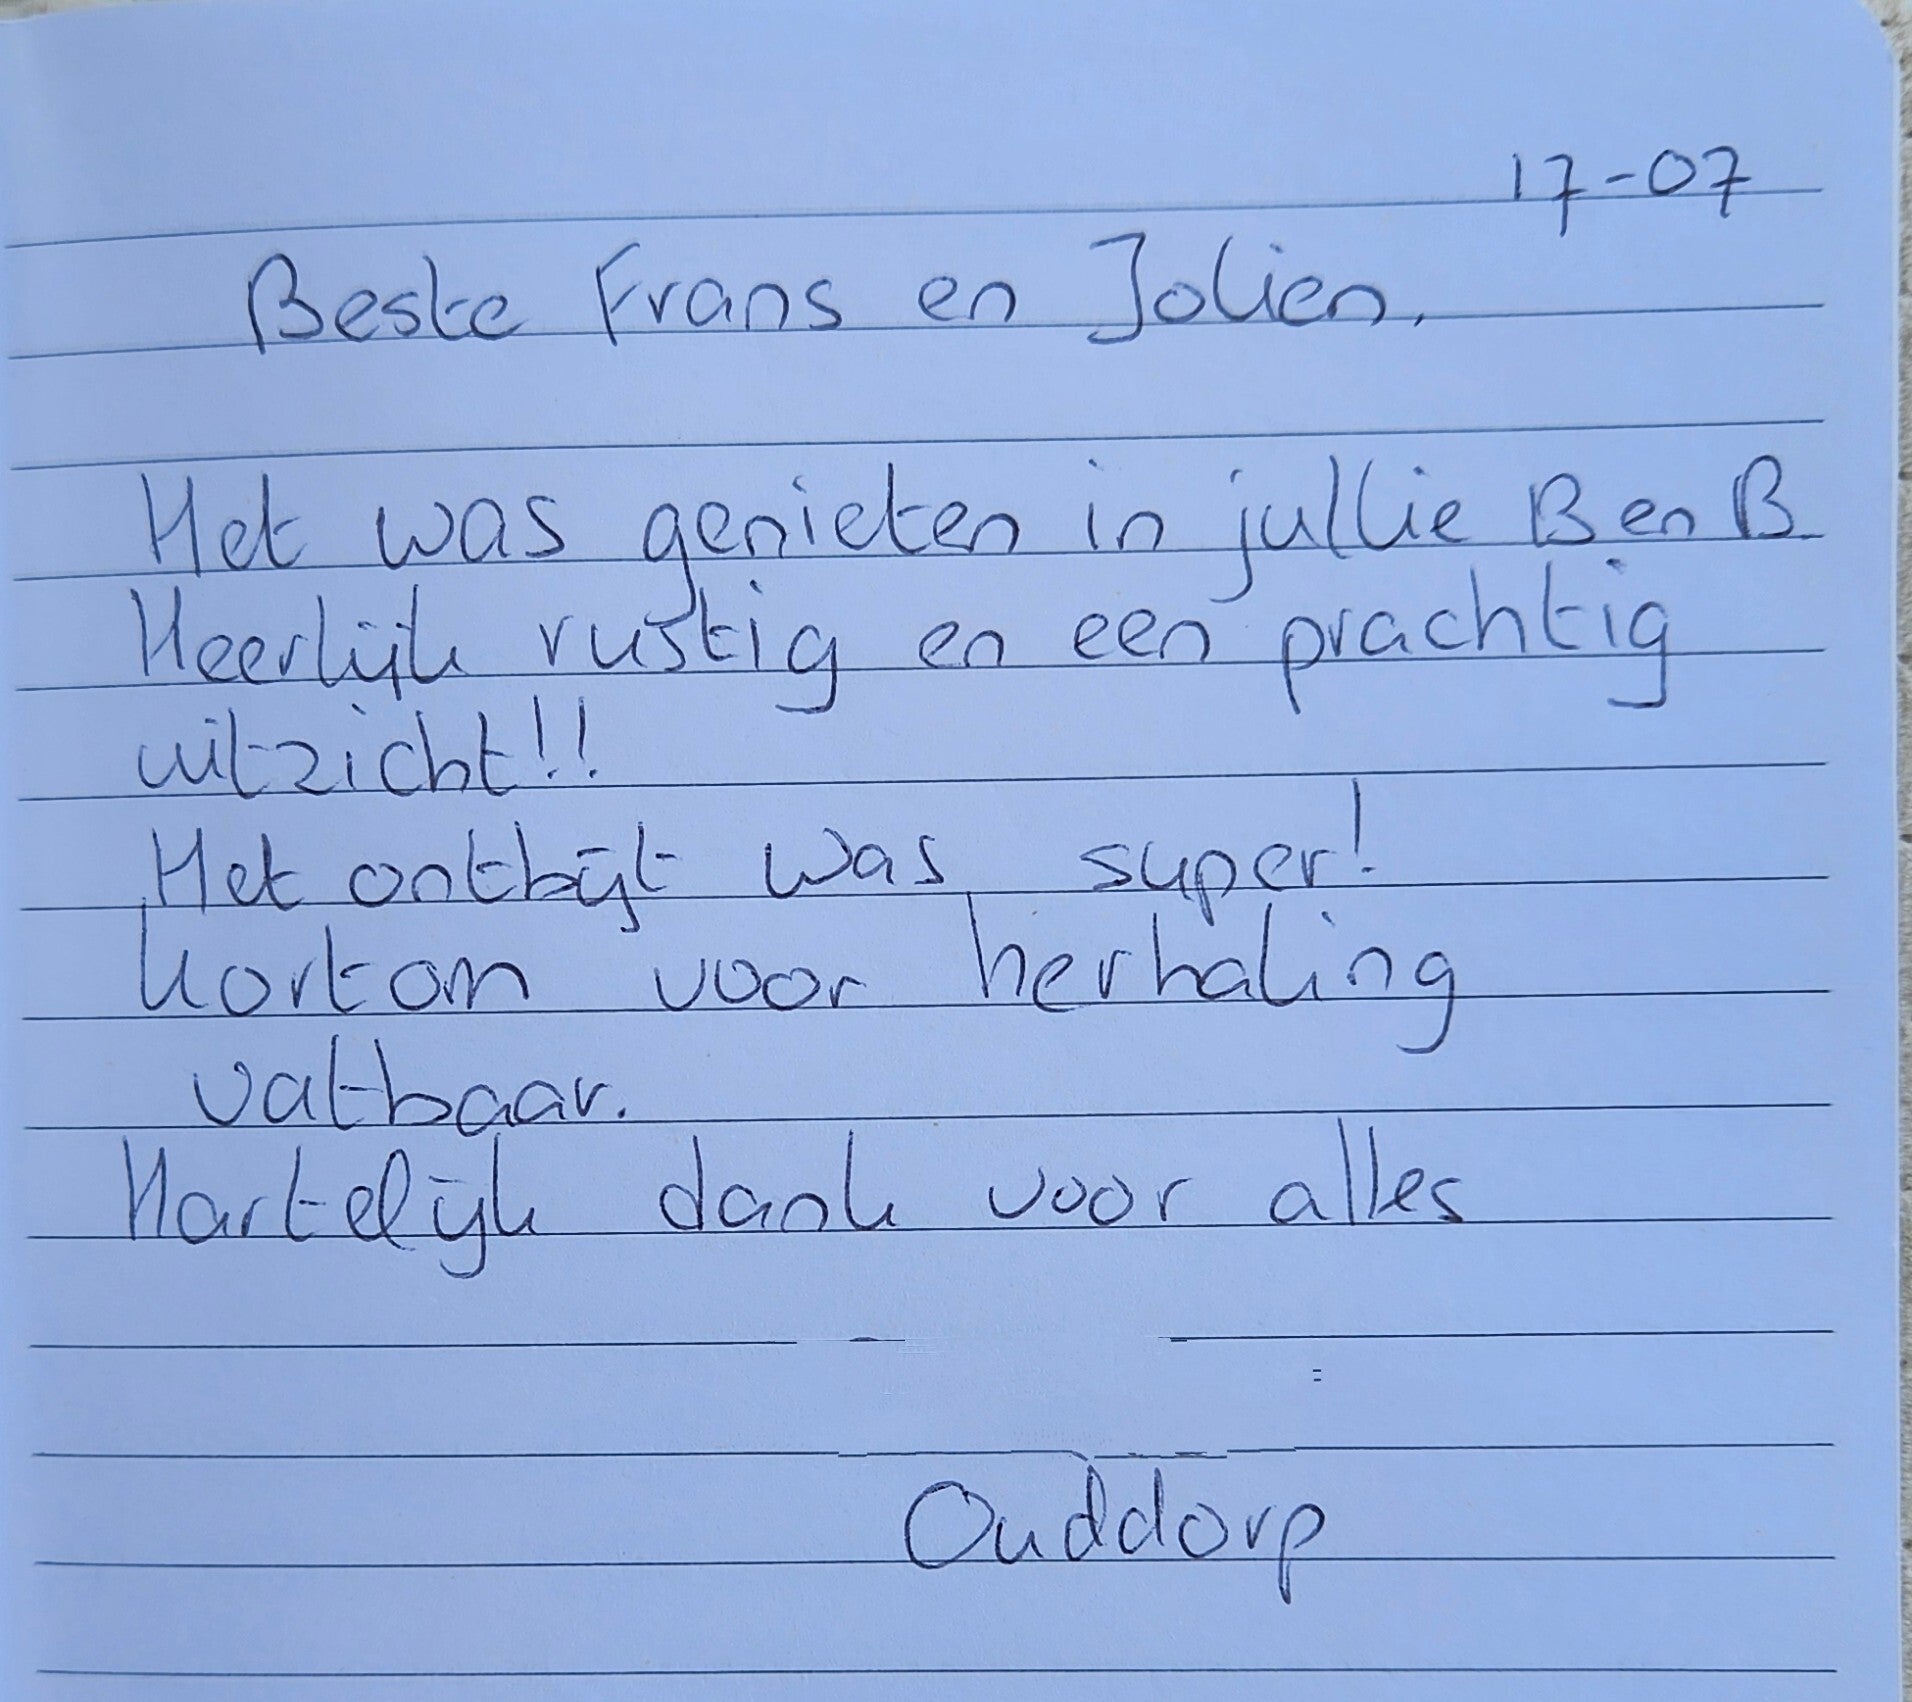 17-07
Beste Frans en Jolien,
Het was genieten in jullie B en B.
Heerlijk rustig en een prachtig
uitzicht!!
Het ontbijt was super!
kortom voor herhaling
vatbaar.
Hartelijk dank voor alles
Ouddorp